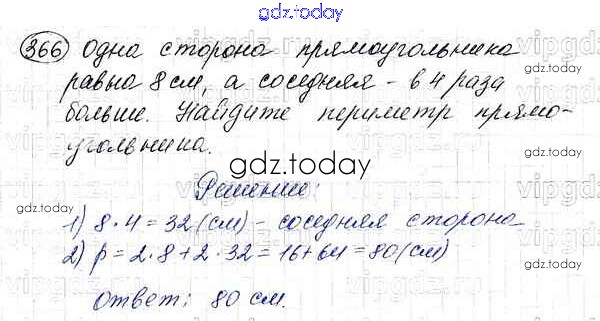 gdz.today
366 Одна сторона прямоугольника
равна 8 см, а соседняя - в 4 раза
больше. Найдите периметр прямо-
угольника.
gdz.today
Решение:
1) 8 · 4 = 32 (см) - соседняя сторона
2) P = 2 · 8 + 2 · 32 = 16 + 64 = 80 (см)
gdz.today
Ответ: 80 см.
gdz.today